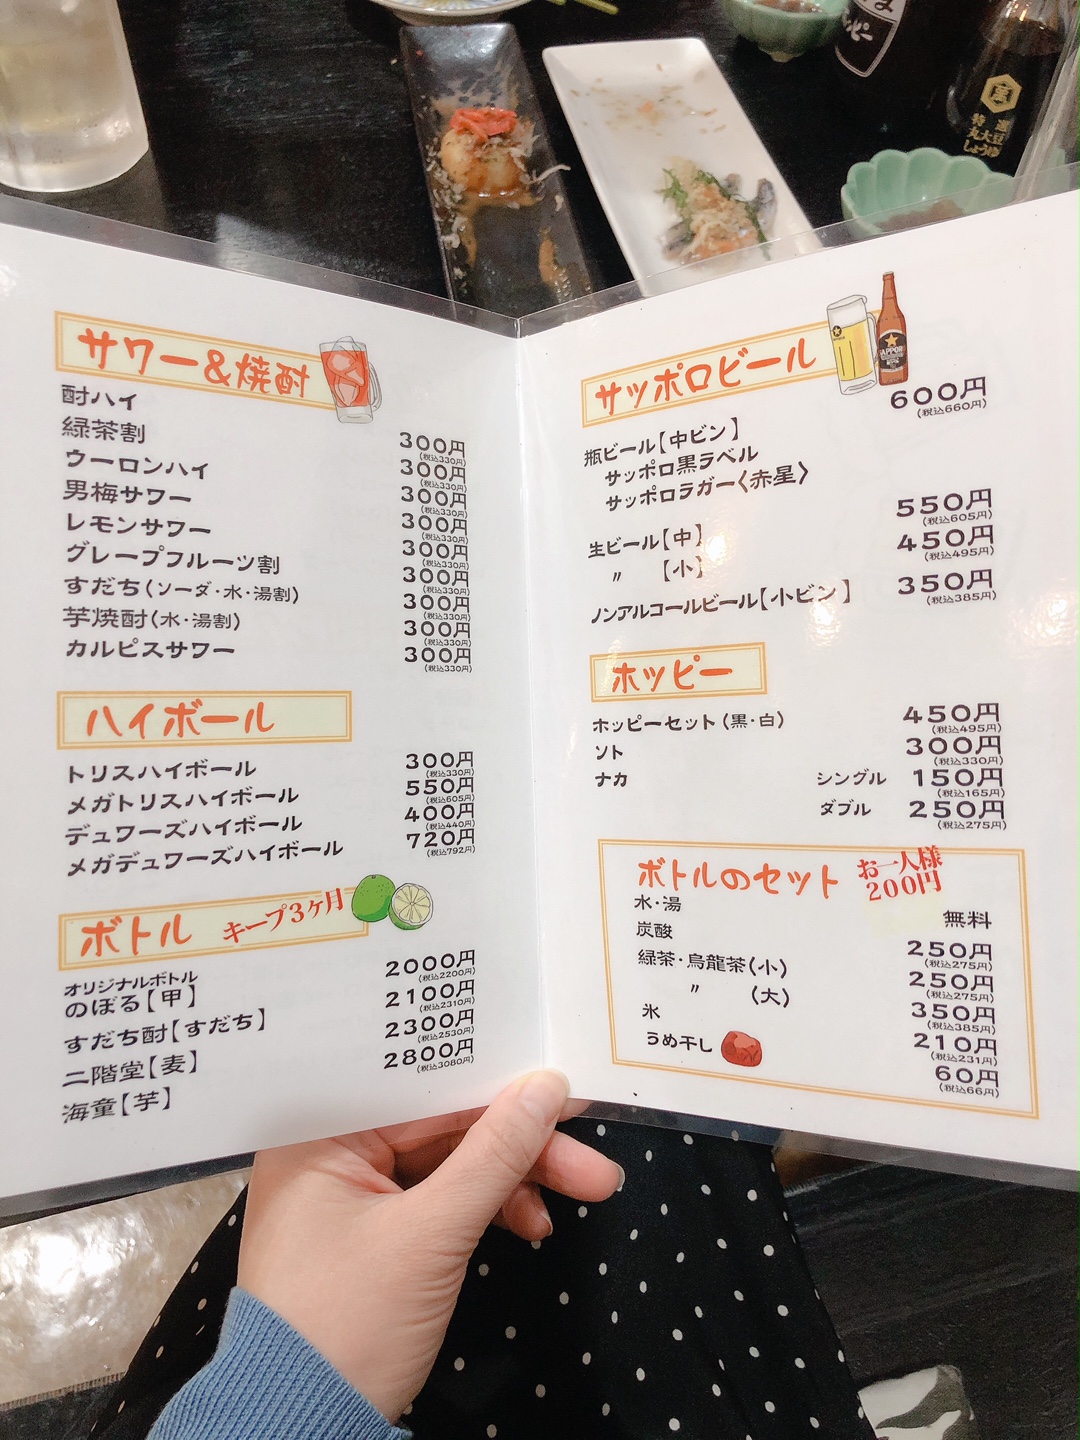 サワー&焼酎
酎ハイ 300円
(税込330円)
緑茶割 300円
(税込330円)
ウーロンハイ 300円
(税込330円)
男梅サワー 300円
(税込330円)
レモンサワー 300円
(税込330円)
グレープフルーツ割 300円
(税込330円)
すだち(ソーダ・水・湯割) 300円
(税込330円)
芋焼酎(水・湯割) 300円
(税込330円)
カルピスサワー 300円
(税込330円)
ハイボール
トリスハイボール 300円
(税込330円)
メガトリスハイボール 550円
(税込605円)
デュワーズハイボール 400円
(税込440円)
メガデュワーズハイボール 720円
(税込792円)
ボトル キープ3ヶ月
オリジナルボトル
のぼる【甲】 2000円
(税込2200円)
すだち酎【すだち】 2100円
(税込2310円)
二階堂【麦】 2300円
(税込2530円)
海童【芋】 2800円
(税込3080円)
サッポロビール
瓶ビール【中ビン】 600円
(税込660円)
サッポロ黒ラベル
サッポロラガー〈赤星〉
生ビール【中】 550円
(税込605円)
〃 【小】 450円
(税込495円)
ノンアルコールビール【小ビン】 350円
(税込385円)
ホッピー
ホッピーセット(黒・白) 450円
(税込495円)
ソト 300円
(税込330円)
ナカ シングル 150円
(税込165円)
ダブル 250円
(税込275円)
ボトルのセット お一人様
200円
水・湯 無料
炭酸 250円
(税込275円)
緑茶・烏龍茶(小) 250円
(税込275円)
〃 (大) 350円
(税込385円)
氷 210円
(税込231円)
うめ干し 60円
(税込66円)
特選
丸大豆
しょうゆ